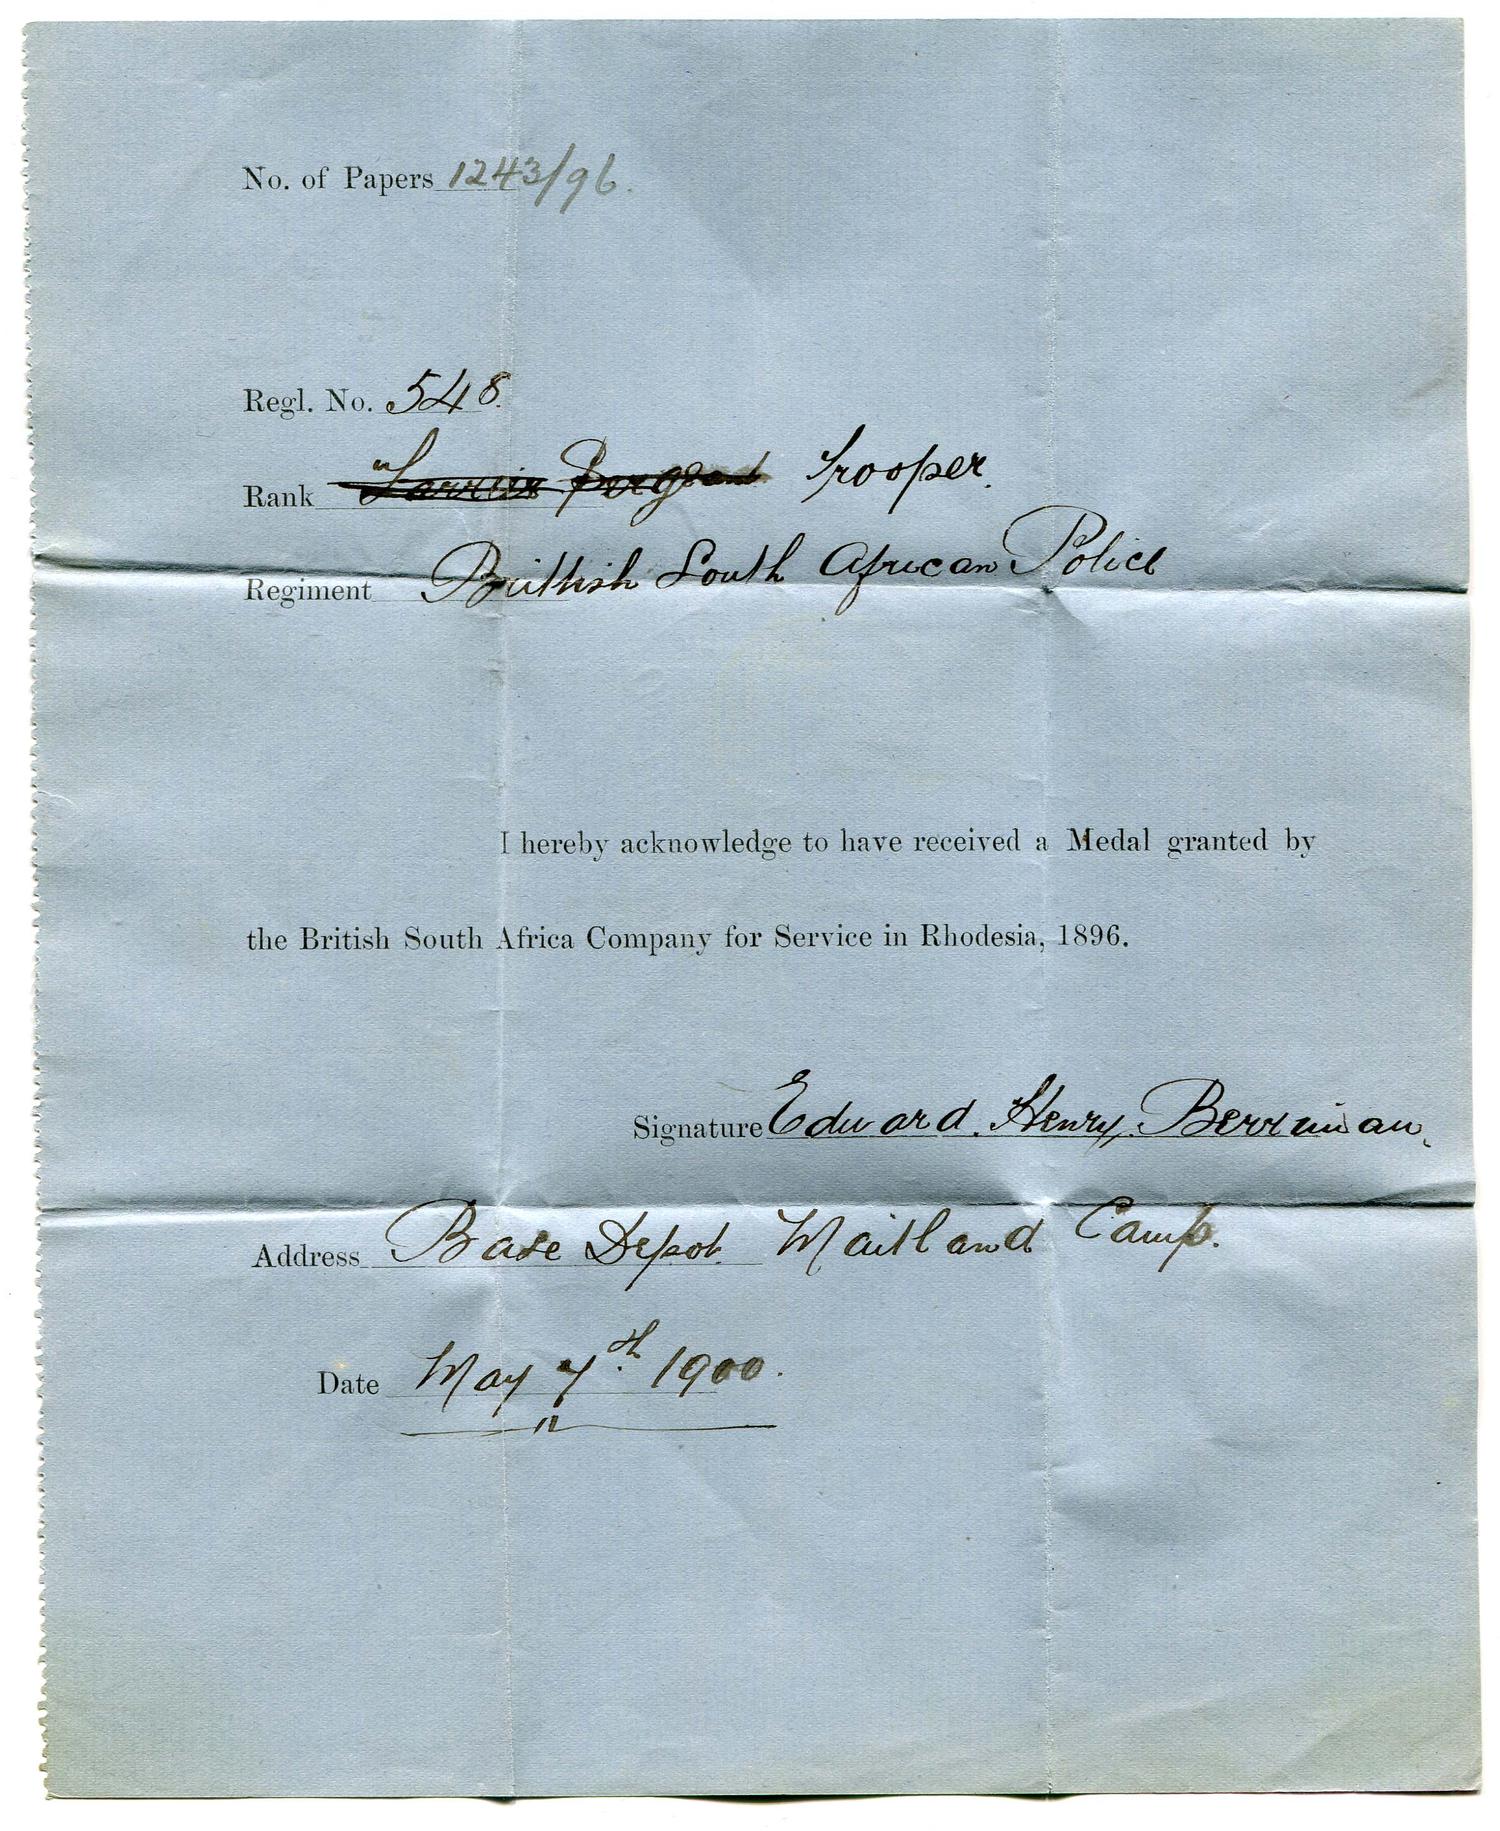 No. of Papers 1243/96.
Regl. No. 548.
Rank Farrier Sergeant Trooper.
Regiment British South African Police
I hereby acknowledge to have received a Medal granted by
the British South Africa Company for Service in Rhodesia, 1896.
Signature Edward. Henry. Berriman.
Address Base Depot. Maitland Camp.
Date May 7th. 1900.